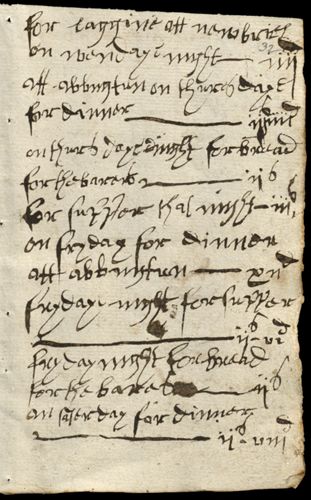 for laggine att newbrie
on wendaye night — iiii
att abbingtun on thursdaye
for dinner — iiiid
on thursdaye night for bread
for the bares — iis
for supper that night — iii
on fryday for dinner
att abbingtun — xiid
frydaye night for supper
— iis vid
fryday night for bread
for the bares — iis
on saterday for dinner
— iis viiid